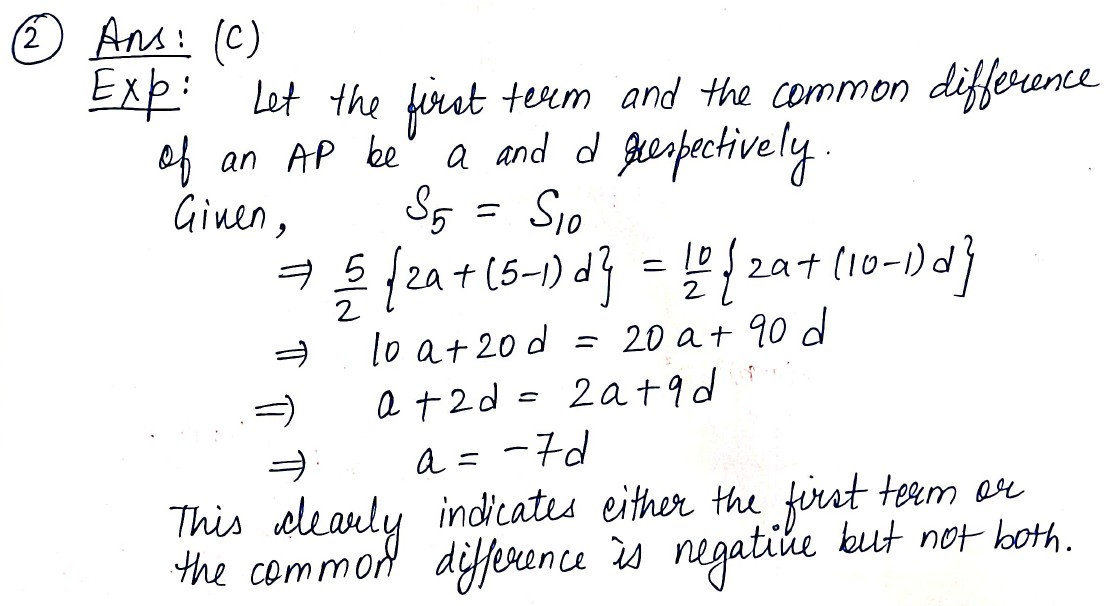 ② Ans: (C)
Exp: Let the first term and the common difference
of an AP be a and d respectively.
Given, S₅ = S₁₀
⇒ 5/2 {2a + (5-1) d} = 10/2 {2a + (10-1) d}
⇒ 10 a + 20 d = 20 a + 90 d
⇒ a + 2d = 2a + 9d
⇒ a = -7d
This clearly indicates either the first term or
the common difference is negative but not both.